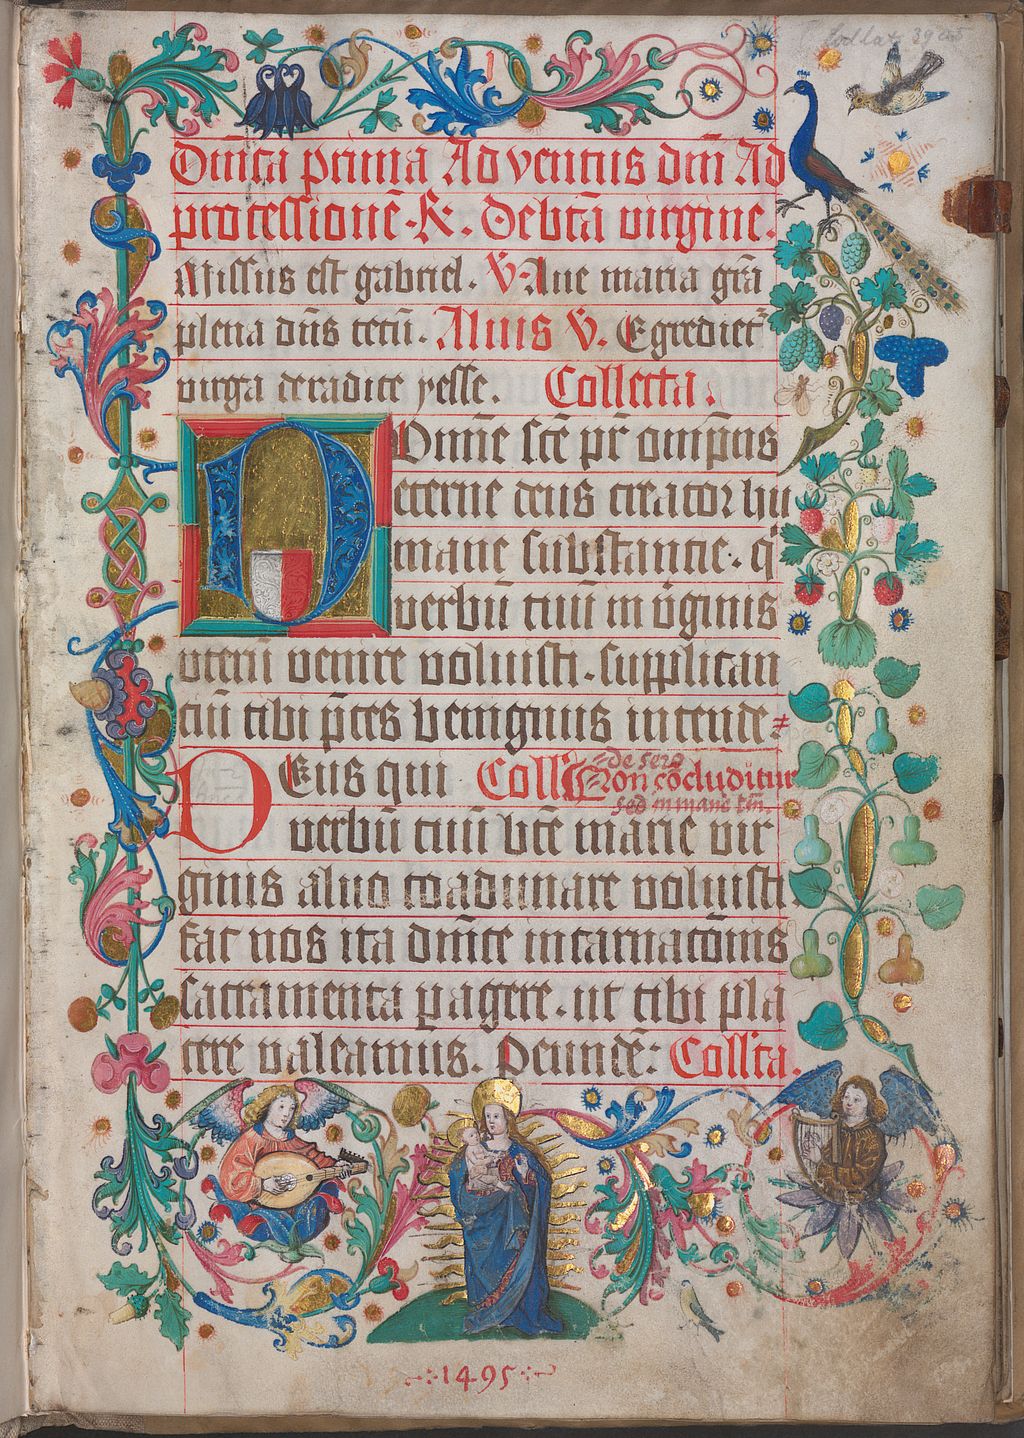 Cod lat 3905
1
Dn̄ica prima Adventus dn̄i Ad
processionē · R̄. De btā virgine.
Missus est gabriel. V̄. Aue maria gr̄a
plena dn̄s tecū. Alius V̄. Egrediet᷑
virga de radice yesse. Collecta.
Domīe scē pr̄ omīpns
eterne deus creator hu
mane substantie. q̄
verbū tuū in v̄ginis
uterū venire voluisti. supplican
ciū tibi p̄ces benignius intende
de sero
Deus qui Coll̄ Non cōcluditur
sed in mane tm̄.
verbū tuū bt̄e marie vir
ginis aluo coadunare voluisti
fac nos ita dn̄ice incarnatōnis
sacramenta ꝑagere. ut tibi pla
cere valeamus. Peundē: Coll̄ta.
1495